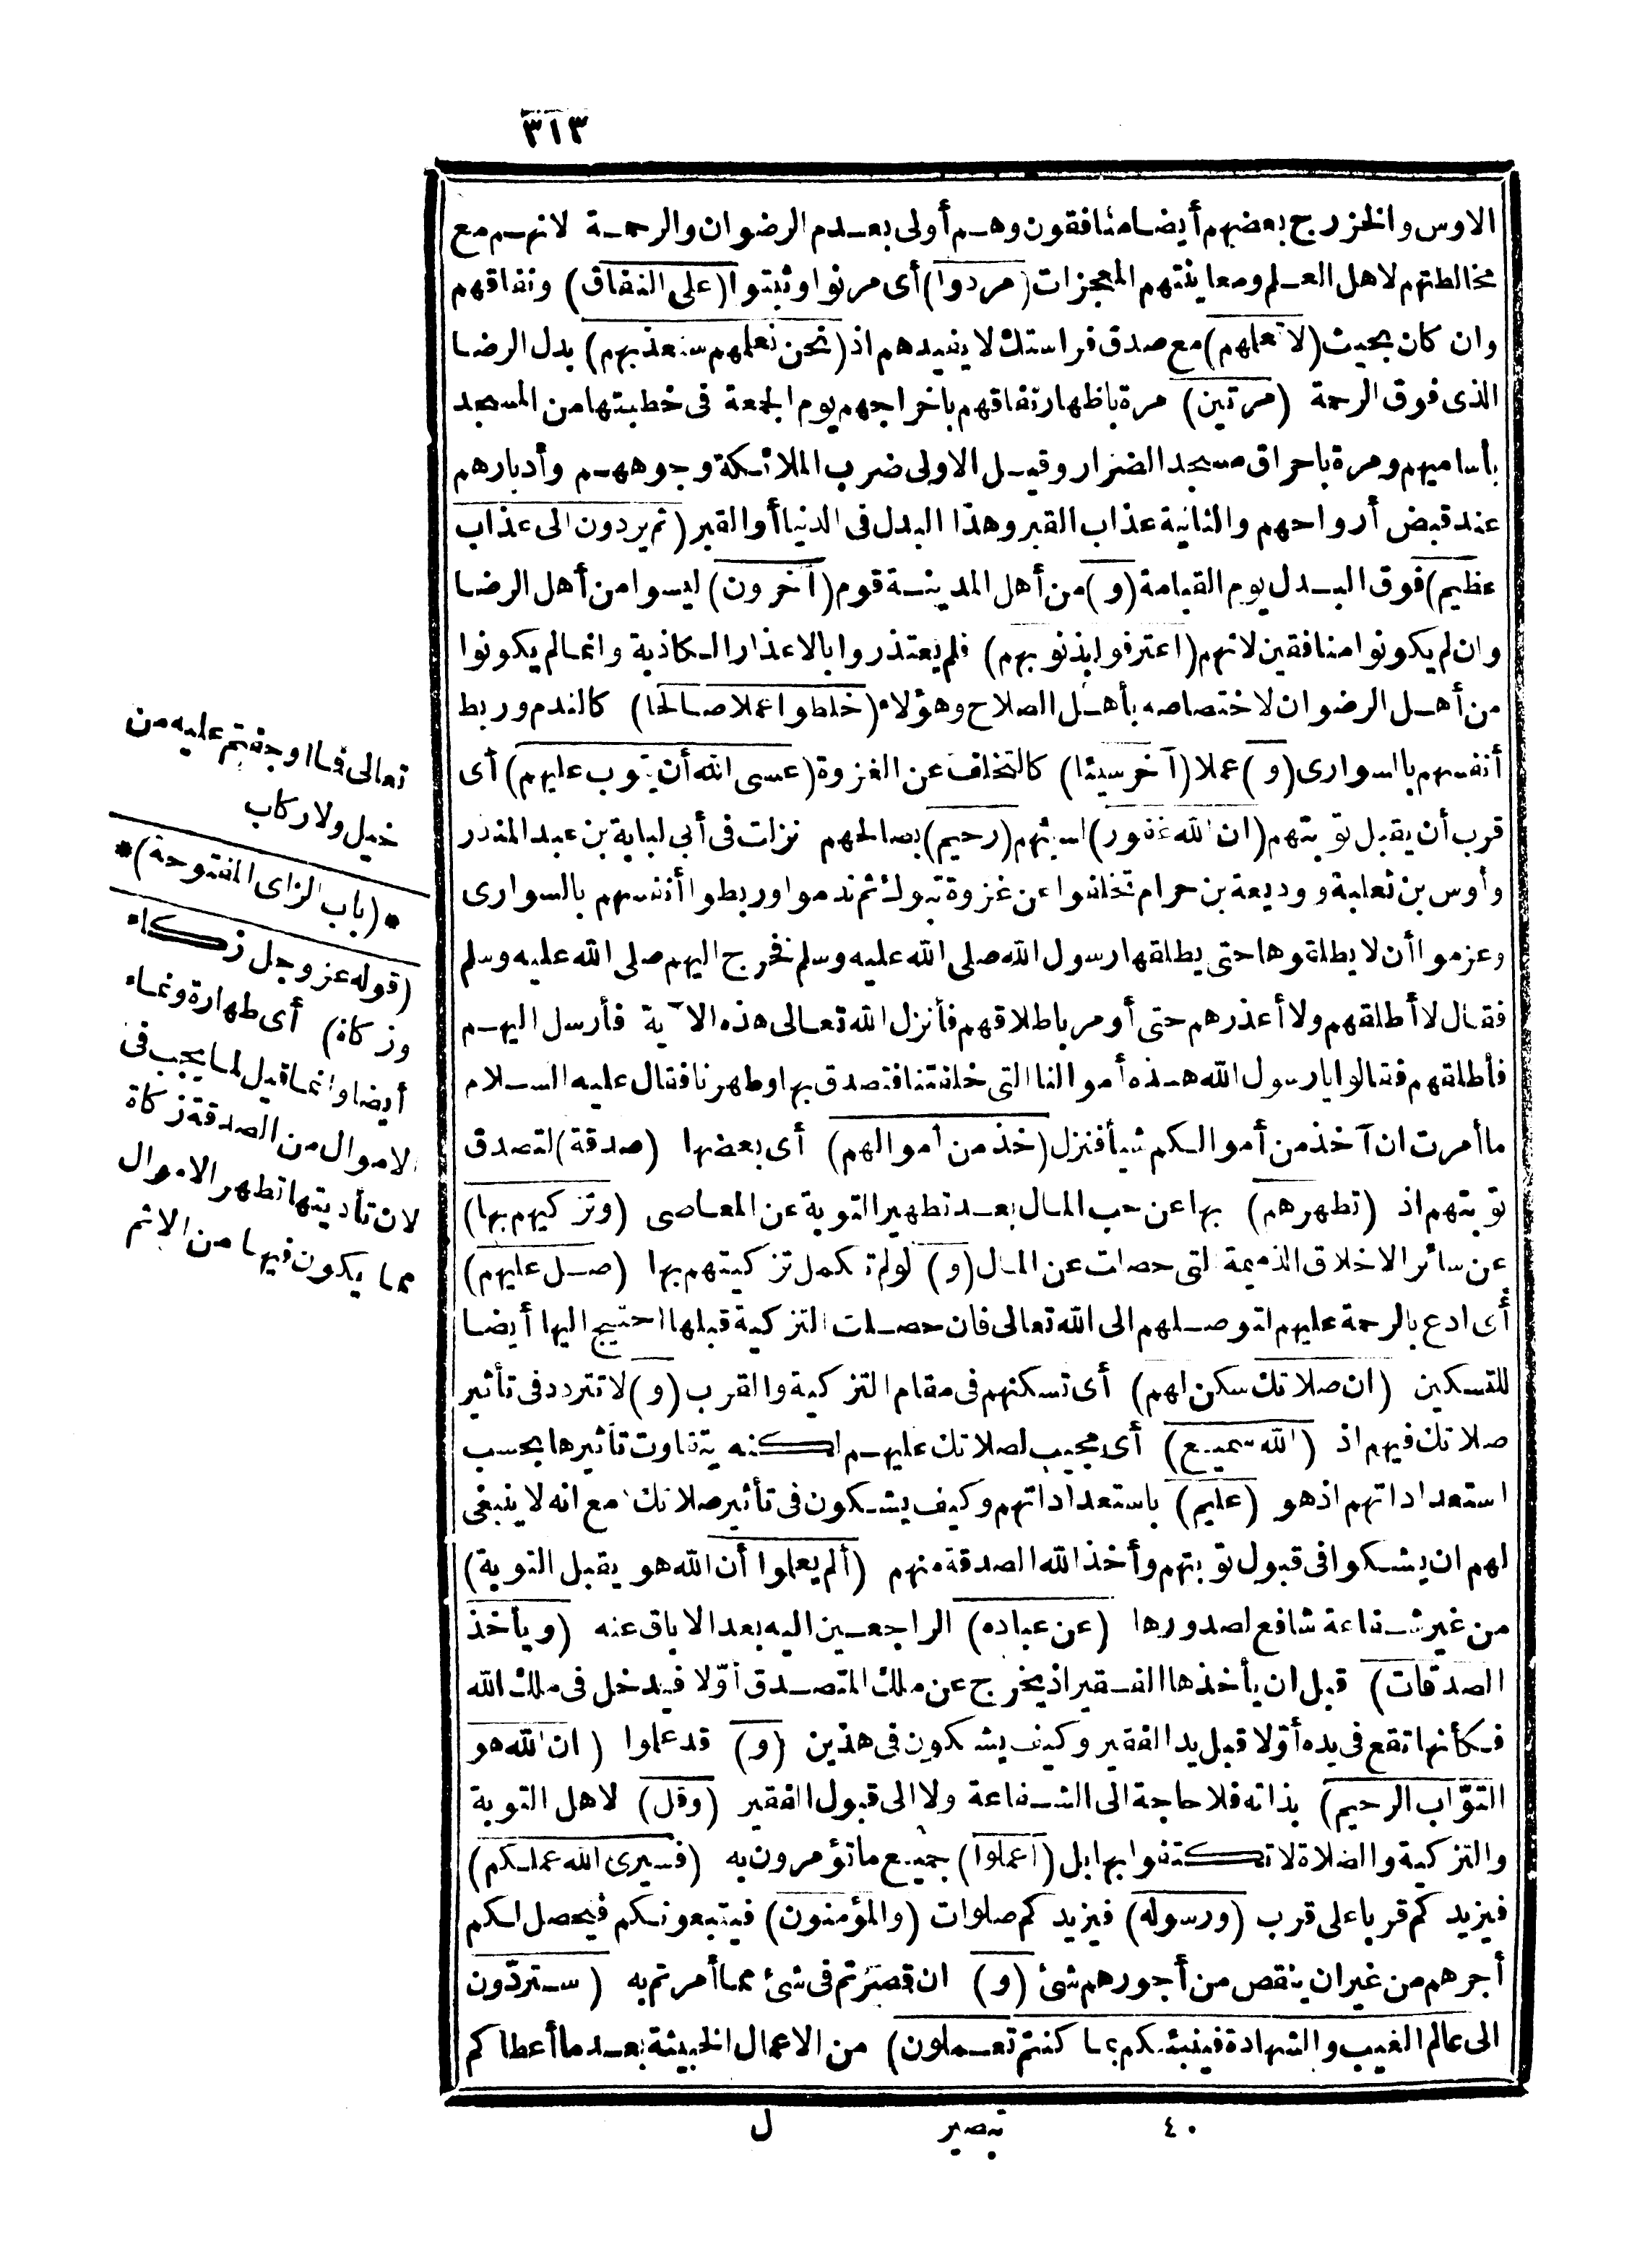 ٣١٣
الاوس والخزرج بعضهم أيضا منافقون وهم أولى بعدم الرضوان والرحمة لانهم مع
مخالطتهم لاهل العلم ومعاينتهم المعجزات (مردوا) أى مرنوا وثبتوا (على النفاق) ونفاقهم
وان كان بحيث (لا تعلمهم) مع صدق فراستك لا يفيدهم اذ (نحن نعلمهم سنعذبهم) بدل الرضا
الذى فوق الرحمة (مرتين) مرة باظهار نفاقهم باخراجهم يوم الجمعة فى خطبتها من المسجد
بأساميهم ومرة باحراق مسجد الضرار وقيل الاولى ضرب الملائكة وجوههم وأدبارهم
عند قبض أرواحهم والثانية عذاب القبر وهذا البدل فى الدنيا أو القبر (ثم يردون الى عذاب
عظيم) فوق البدل يوم القيامة (و) من أهل المدينة قوم (آخرون) ليسوا من أهل الرضا
وان لم يكونوا منافقين لانهم (اعترفوا بذنوبهم) فلم يعتذروا بالاعذار الكاذبة وانما لم يكونوا
من أهل الرضوان لاختصاصه بأهل الصلاح وهؤلاء (خلطوا عملا صالحا) كالندم وربط
أنفسهم بالسوارى (و) عملا (آخر سيئا) كالتخلف عن الغزوة (عسى الله أن يتوب عليهم) أى
قرب أن يقبل توبتهم (ان الله غفور) لسيئهم (رحيم) بصالحهم نزلت فى أبى لبابة بن عبد المنذر
وأوس بن ثعلبة ووديعة بن حرام تخلفوا عن غزوة تبوك ثم ندموا وربطوا أنفسهم بالسوارى
وعزموا أن لا يطلقوها حتى يطلقها رسول الله صلى الله عليه وسلم فخرج اليهم صلى الله عليه وسلم
فقال لا أطلقهم ولا أعذرهم حتى أومر باطلاقهم فأنزل الله تعالى هذه الآية فأرسل اليهم
فأطلقهم فقالوا يا رسول الله هذه أموالنا التى خلفتنا فتصدق بها وطهرنا فقال عليه السلام
ما أمرت ان آخذ من أموالكم شيأ فنزل (خذ من أموالهم) أى بعضها (صدقة) لتصدق
توبتهم اذ (تطهرهم) بها عن حب المال بعد تطهير التوبة عن المعاصى (وتزكيهم بها)
عن سائر الاخلاق الذميمة التى حصلت عن المال (و) لو لم تكمل تزكيتهم بها (صل عليهم)
أى ادع بالرحمة عليهم لتوصلهم الى الله تعالى فان حصلت التزكية قبلها احتيج اليها أيضا
للتسكين (ان صلاتك سكن لهم) أى تسكنهم فى مقام التزكية والقرب (و) لا تتردد فى تأثير
صلاتك فيهم اذ (الله سميع) أى مجيب لصلاتك عليهم لكنه يتفاوت تأثيرها بحسب
استعداداتهم اذ هو (عليم) باستعداداتهم وكيف يشكون فى تأثير صلاتك مع انه لا ينبغى
لهم ان يشكوا فى قبول توبتهم وأخذ الله الصدقة منهم (ألم يعلموا أن الله هو يقبل التوبة)
من غير شفاعة شافع لصدورها (عن عباده) الراجعين اليه بعد الاباق عنه (ويأخذ
الصدقات) قبل ان يأخذها الفقير اذ يخرج عن ملك المتصدق أوّلا فيدخل فى ملك الله
فكأنها تقع فى يده أوّلا قبل يد الفقير وكيف يشكون فى هذين (و) قد علموا (ان الله هو
التوّاب الرحيم) بذاته فلا حاجة الى الشفاعة ولا الى قبول الفقير (وقل) لاهل التوبة
والتزكية والصلاة لا تكتفوا بها بل (اعملوا) جميع ما تؤمرون به (فسيرى الله عملكم)
فيزيدكم قربا على قرب (ورسوله) فيزيدكم صلوات (والمؤمنون) فيتبعونكم فيحصل لكم
أجرهم من غير ان ينقص من أجورهم شئ (و) ان قصرتم فى شئ مما أمرتم به (ستردّون
الى عالم الغيب والشهادة فينبئكم بما كنتم تعملون) من الاعمال الخبيثة بعد ما أعطاكم
تعالى فما اوجفتم عليه من
خيل ولا ركاب
*(باب الزاى المفتوحة)*
(قوله عز وجل زكاء
وزكاة) أى طهارة ونماء
أيضا وانما قيل لما يجب فى
الاموال من الصدقة زكاة
لان تأديتها تطهر الاموال
مما يكون فيها من الاثم
٤٠ تبصير ل